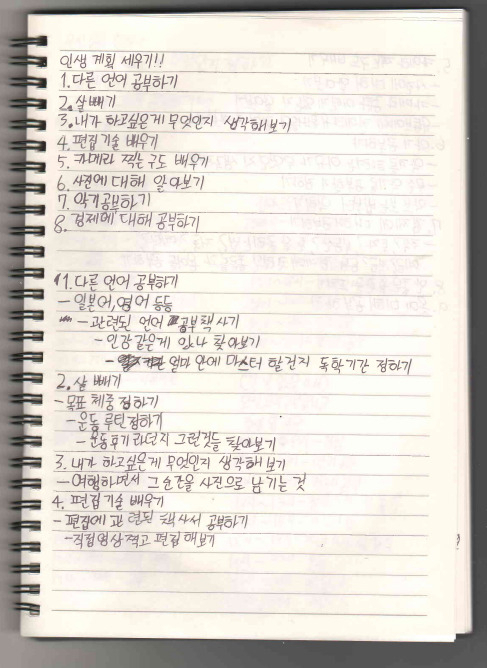 인생 계획 세우기!!
1. 다른 언어 공부하기
2. 살 빼기
3. 내가 하고싶은게 무엇인지 생각해보기
4. 편집 기술 배우기
5. 카메라 찍는 구도 배우기
6. 사진에 대해 알아보기
7. 악기공부하기
8. 경제에 대해 공부하기
1. 다른 언어 공부하기
- 일본어, 영어 등등
- 관련된 언어 공부책 사기
- 인강 같은게 있나 찾아보기
- 얼마 안에 마스터 할건지 독학기간 정하기
2. 살 빼기
- 목표 체중 정하기
- 운동 루틴 정하기
- 운동후기라던지 그런것들 찾아보기
3. 내가 하고싶은게 무엇인지 생각해보기
- 여행하면서 그 순간을 사진으로 남기는 것
4. 편집 기술 배우기
- 편집에 관련된 책 사서 공부하기
- 직접 영상 찍고 편집 해보기